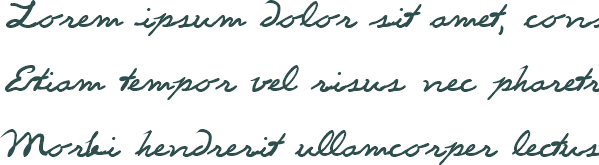 Lorem ipsum dolor sit amet, cons
Etiam tempor vel risus nec pharetr
Morbi hendrerit ullamcorper lectus